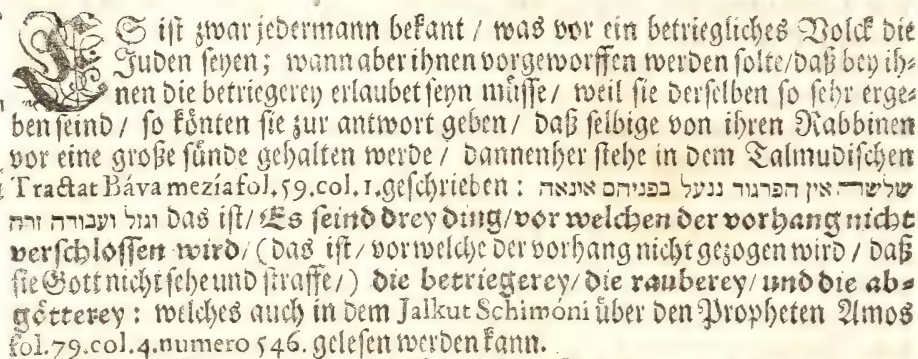 ES ist zwar jedermann bekant / was vor ein betriegliches Volck die
Juden seyen; wann aber ihnen vorgeworffen werden solte / daß bey ih⸗
nen die betriegerey erlaubet seyn müsse / weil sie derselben so sehr erge⸗
ben seind / so könten sie zur antwort geben / daß selbige von ihren Rabbinen
vor eine große sünde gehalten werde / dannenher stehe in dem Talmudischen
Tractat Báva mezía fol. 59. col. 1. geschrieben : שלשה אין הפרגוד ננעל בפניהם אונאה
וגזל ועבודה זרה das ist / Es seind drey ding / vor welchen der vorhang nicht
verschlossen wird / (das ist / vor welche der vorhang nicht gezogen wird / daß
sie Gott nicht sehe und straffe /) die betriegerey / die rauberey / und die ab⸗
götterey : welches auch in dem Jalkut Schimóni über den Propheten Amos
fol. 79. col. 4. numero 546. gelesen werden kann.